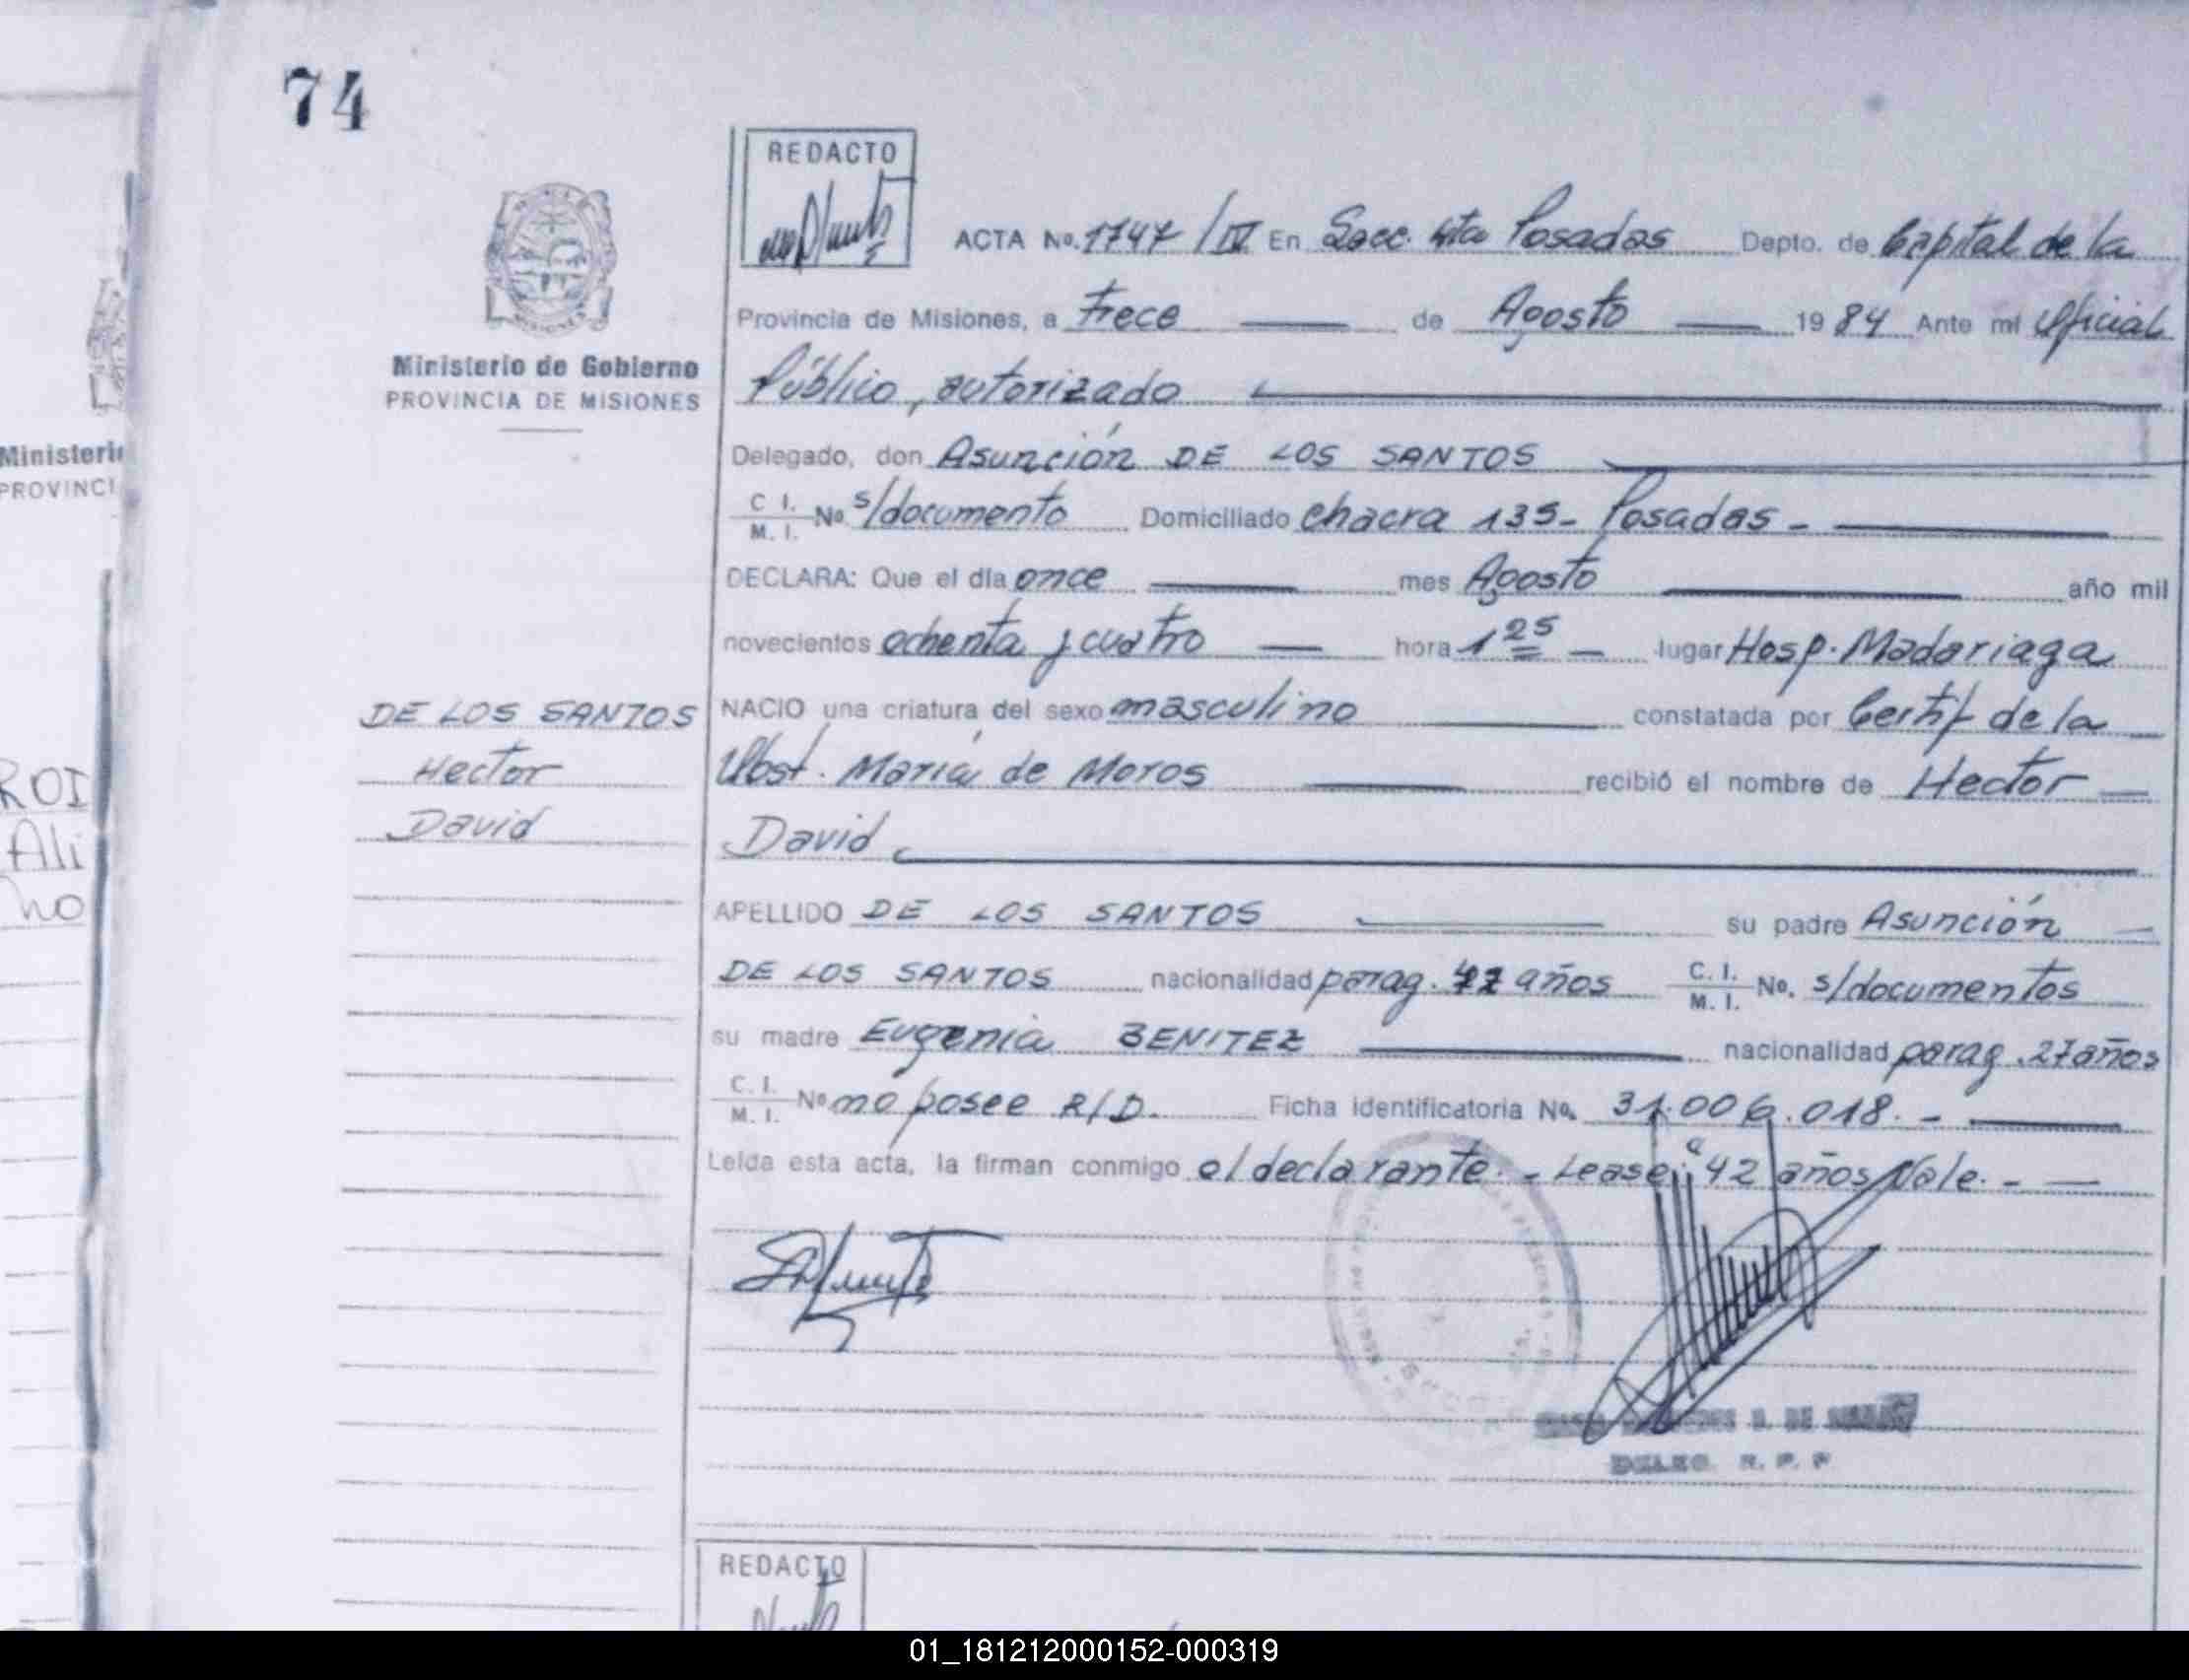 74
REDACTO
ACTA No. 1747/IV En Secc. 4ta Posadas Depto. de Capital de la
Provincia de Misiones, a trece de Agosto 1984 Ante mi Oficial
Ministerio de Gobierno
PROVINCIA DE MISIONES
Público, autorizado
Delegado, don Asunción DE LOS SANTOS
C. I. M. I. No. s/documento Domiciliado chacra 135- Posadas -
DECLARA: Que el día once mes Agosto año mil
novecientos ochenta y cuatro hora 1 25 lugar Hosp. Madariaga
NACIO una criatura del sexo masculino constatada por Certif de la
Obst. María de Moros recibió el nombre de Hector
David
DE LOS SANTOS
Hector
David
APELLIDO DE LOS SANTOS su padre Asunción
DE LOS SANTOS nacionalidad parag. años C. I. M. I. No. s/documentos
su madre Eugenia BENITEZ nacionalidad parag. 27 años
C. I. M. I. No no posee R/D. Ficha identificatoria No. 31.006.018. -
Leída esta acta, la firman conmigo el declarante. - Lease: 42 años Vale. -
DELEG. R. P. P
REDACTO
Ministeri
PROVINCI
ROI
Ali
no
01_181212000152-000319